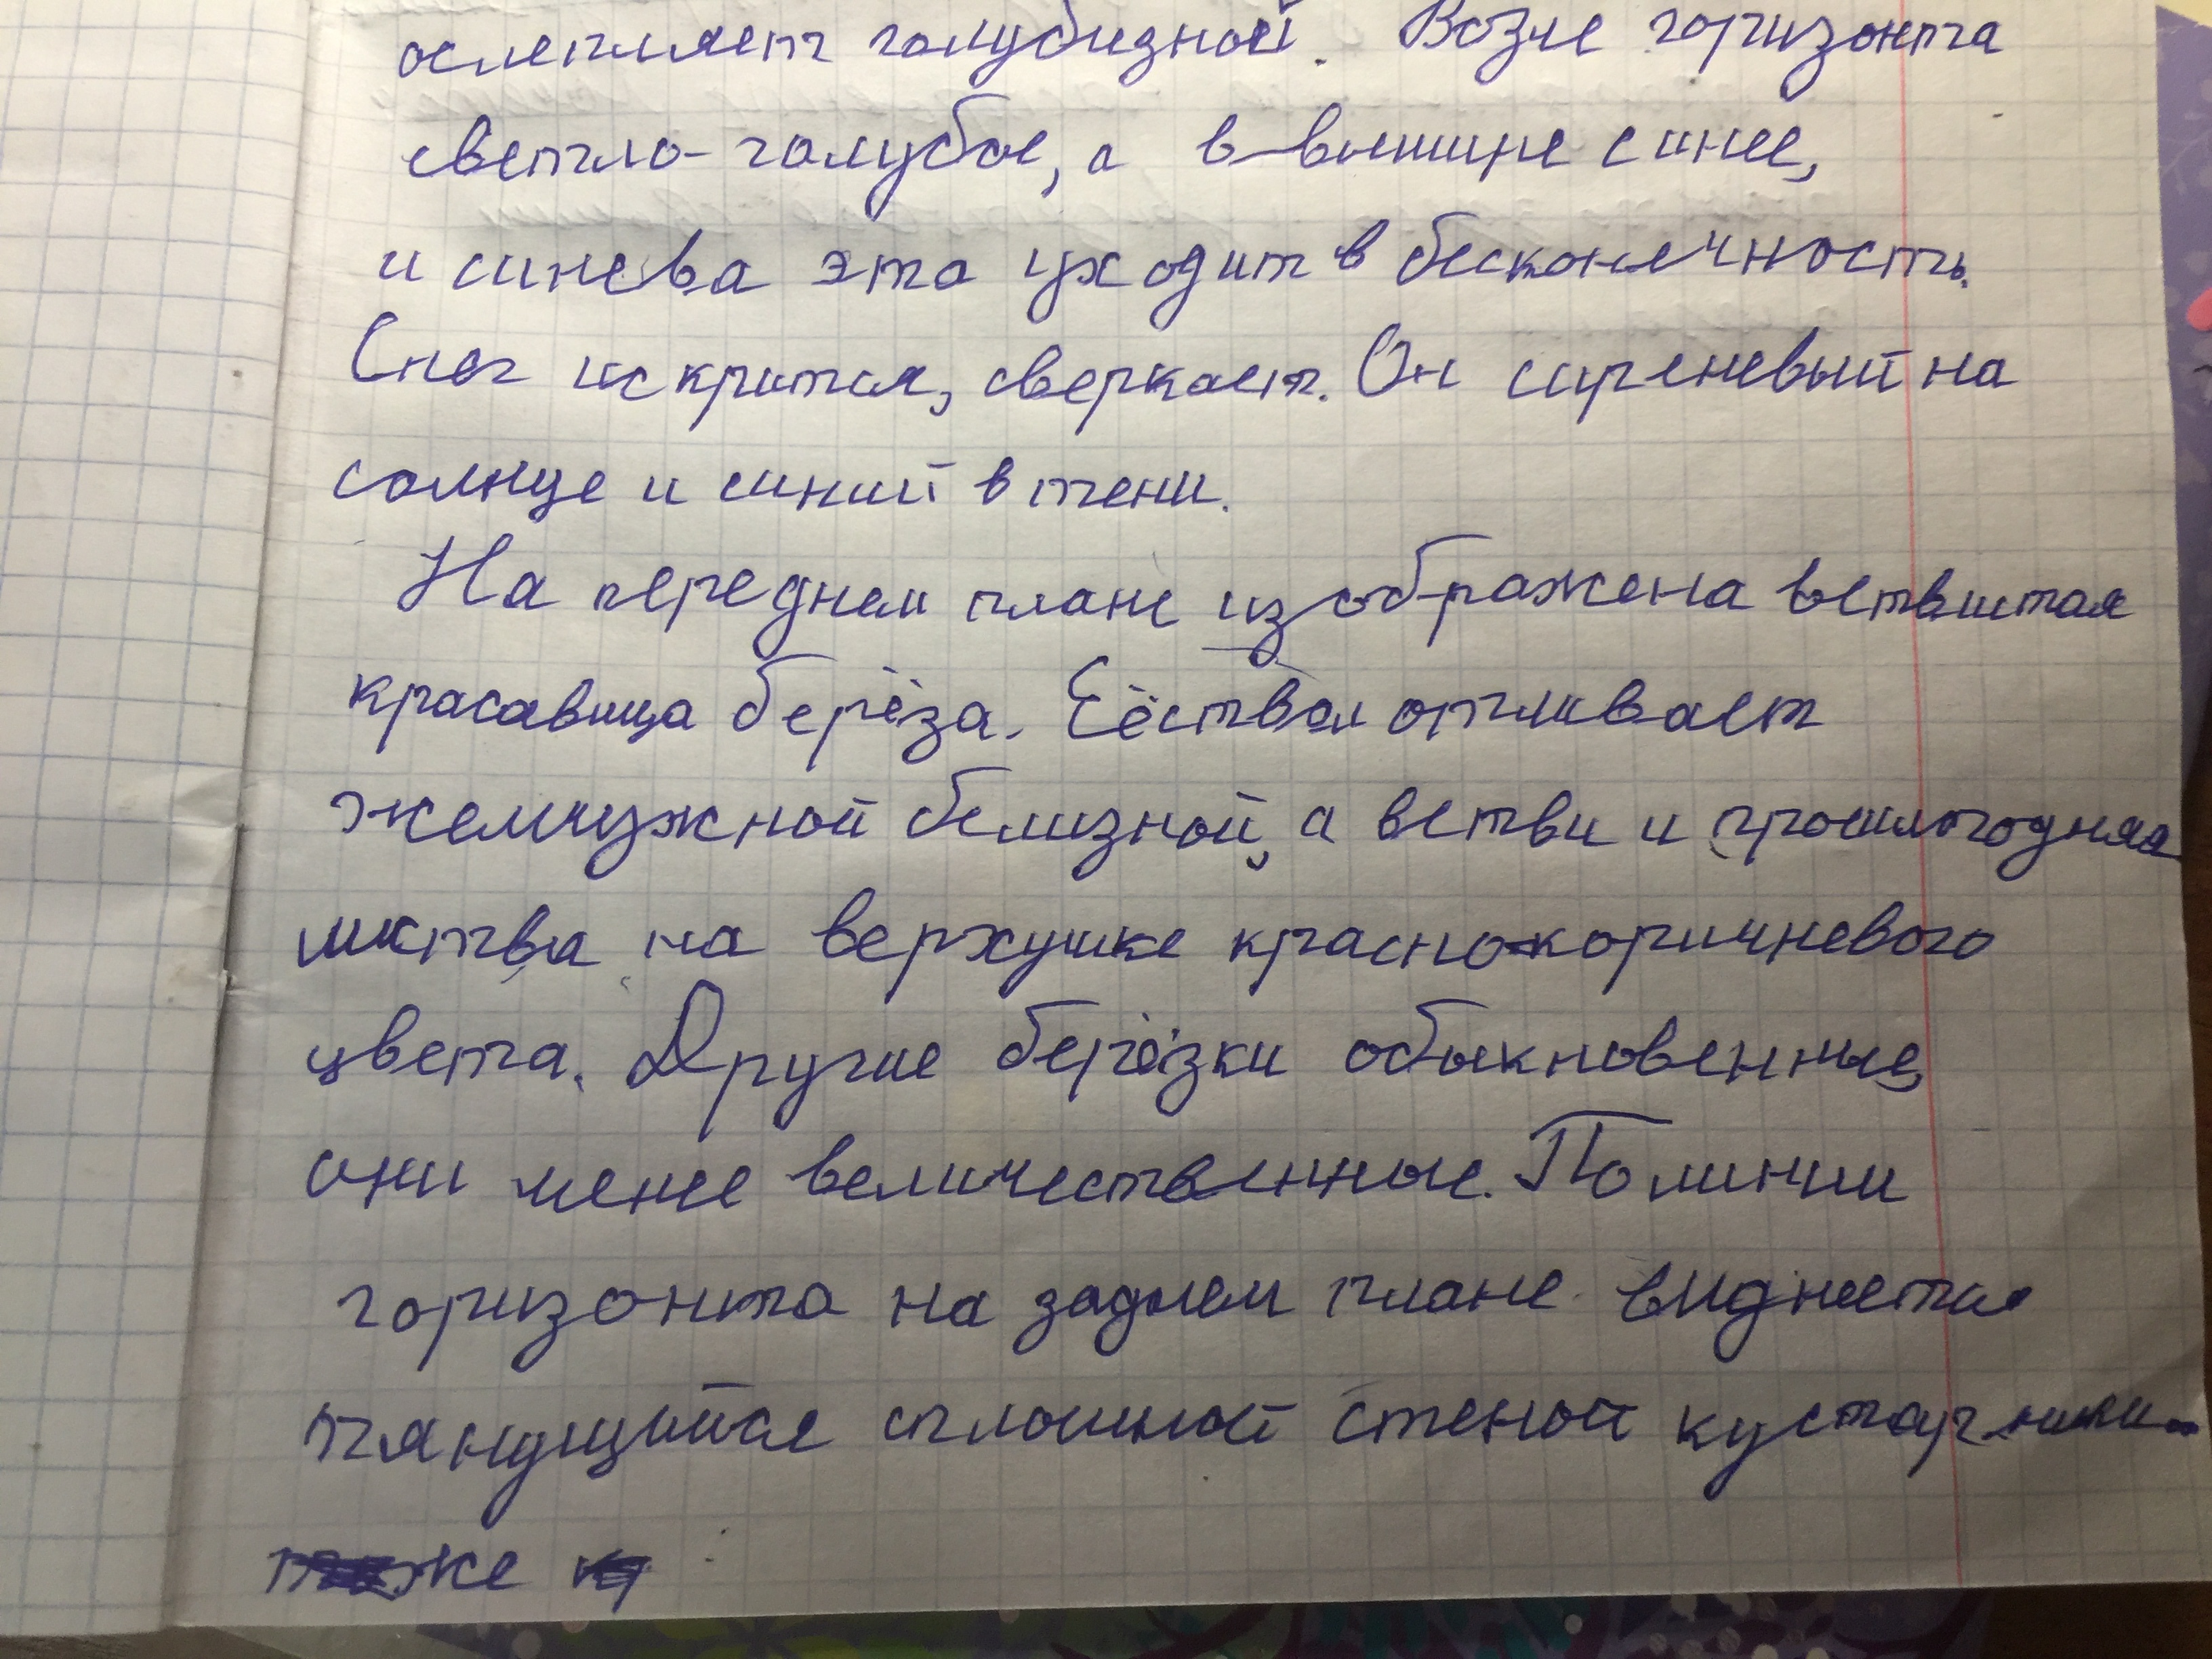 ослепляет голубизной. Возле горизонта
светло-голубое, а в вышине синее,
и синева эта уходит в бесконечность.
Снег искрится, сверкает. Он сиреневый на
солнце и синий в тени.
На переднем плане изображена ветвистая
красавица берёза. Её ствол отливает
жемчужной белизной, а ветви и прошлогодняя
листва на верхушке красно-коричневого
цвета. Другие берёзки обыкновенные,
они менее величественные. По линии
горизонта на заднем плане виднеется
тянущийся сплошной стеной кустарник.
же